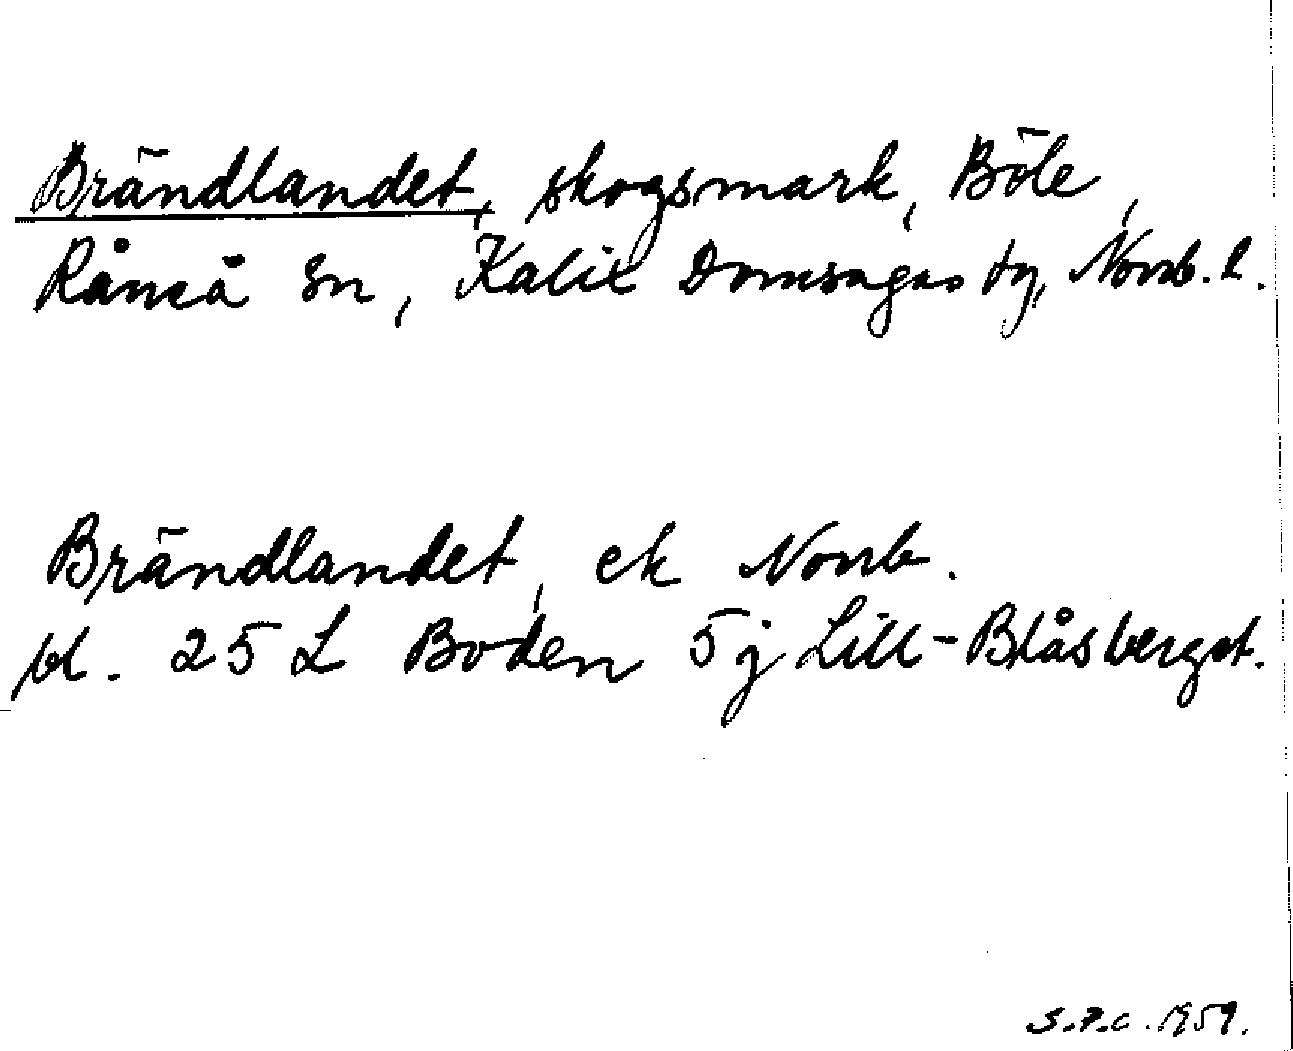 Brändlandet, skogsmark, Böle,
Råneå sn, Kalix Domsagas tg, Norrb. l.
Brändlandet, ek Norrb.
bl. 25 L Boden 5j Lill-Blåsberget.
S.P.C. 1959.